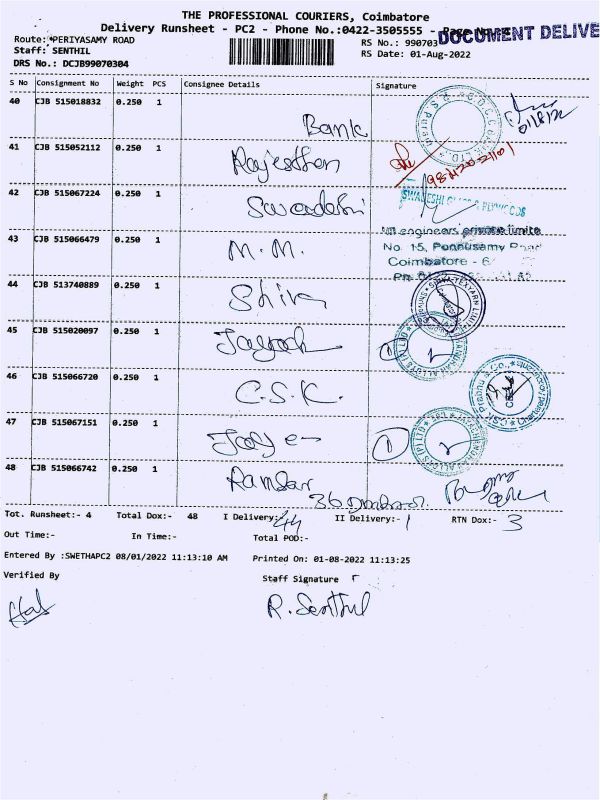 THE PROFESSIONAL COURIERS, Coimbatore
Delivery Runsheet - PC2 - Phone No.:0422-3505555 -
DOCUMENT DELIVE
Route: PERIYASAMY ROAD
RS No.: 990703
Staff: SENTHIL
RS Date: 01-Aug-2022
DRS No.: DCJB99070304
S No Consignment No Weight PCS Consignee Details Signature
40 CJB 515018832 0.250 1
Bank
41 CJB 515052112 0.250 1
Rajesthan
42 CJB 515067224 0.250 1
Swadeshi
SWADESHI GLASS & PLYWOODS
43 CJB 515066479 0.250 1
M.M.
engineers private limite
No. 15, Ponnusamy
Coimbatore - 6
44 CJB 513740889 0.250 1
Shiva
45 CJB 515020097 0.250 1
1
46 CJB 515066720 0.250 1
C.S.K.
47 CJB 515067151 0.250 1
1
48 CJB 515066742 0.250 1
Tot. Runsheet:- 4 Total Dox:- 48 I Delivery:- 44 II Delivery:- 1 RTN Dox:- 3
Out Time:- In Time:- Total POD:-
Entered By :SWETHAPC2 08/01/2022 11:13:10 AM Printed On: 01-08-2022 11:13:25
Verified By Staff Signature
R. Senthil